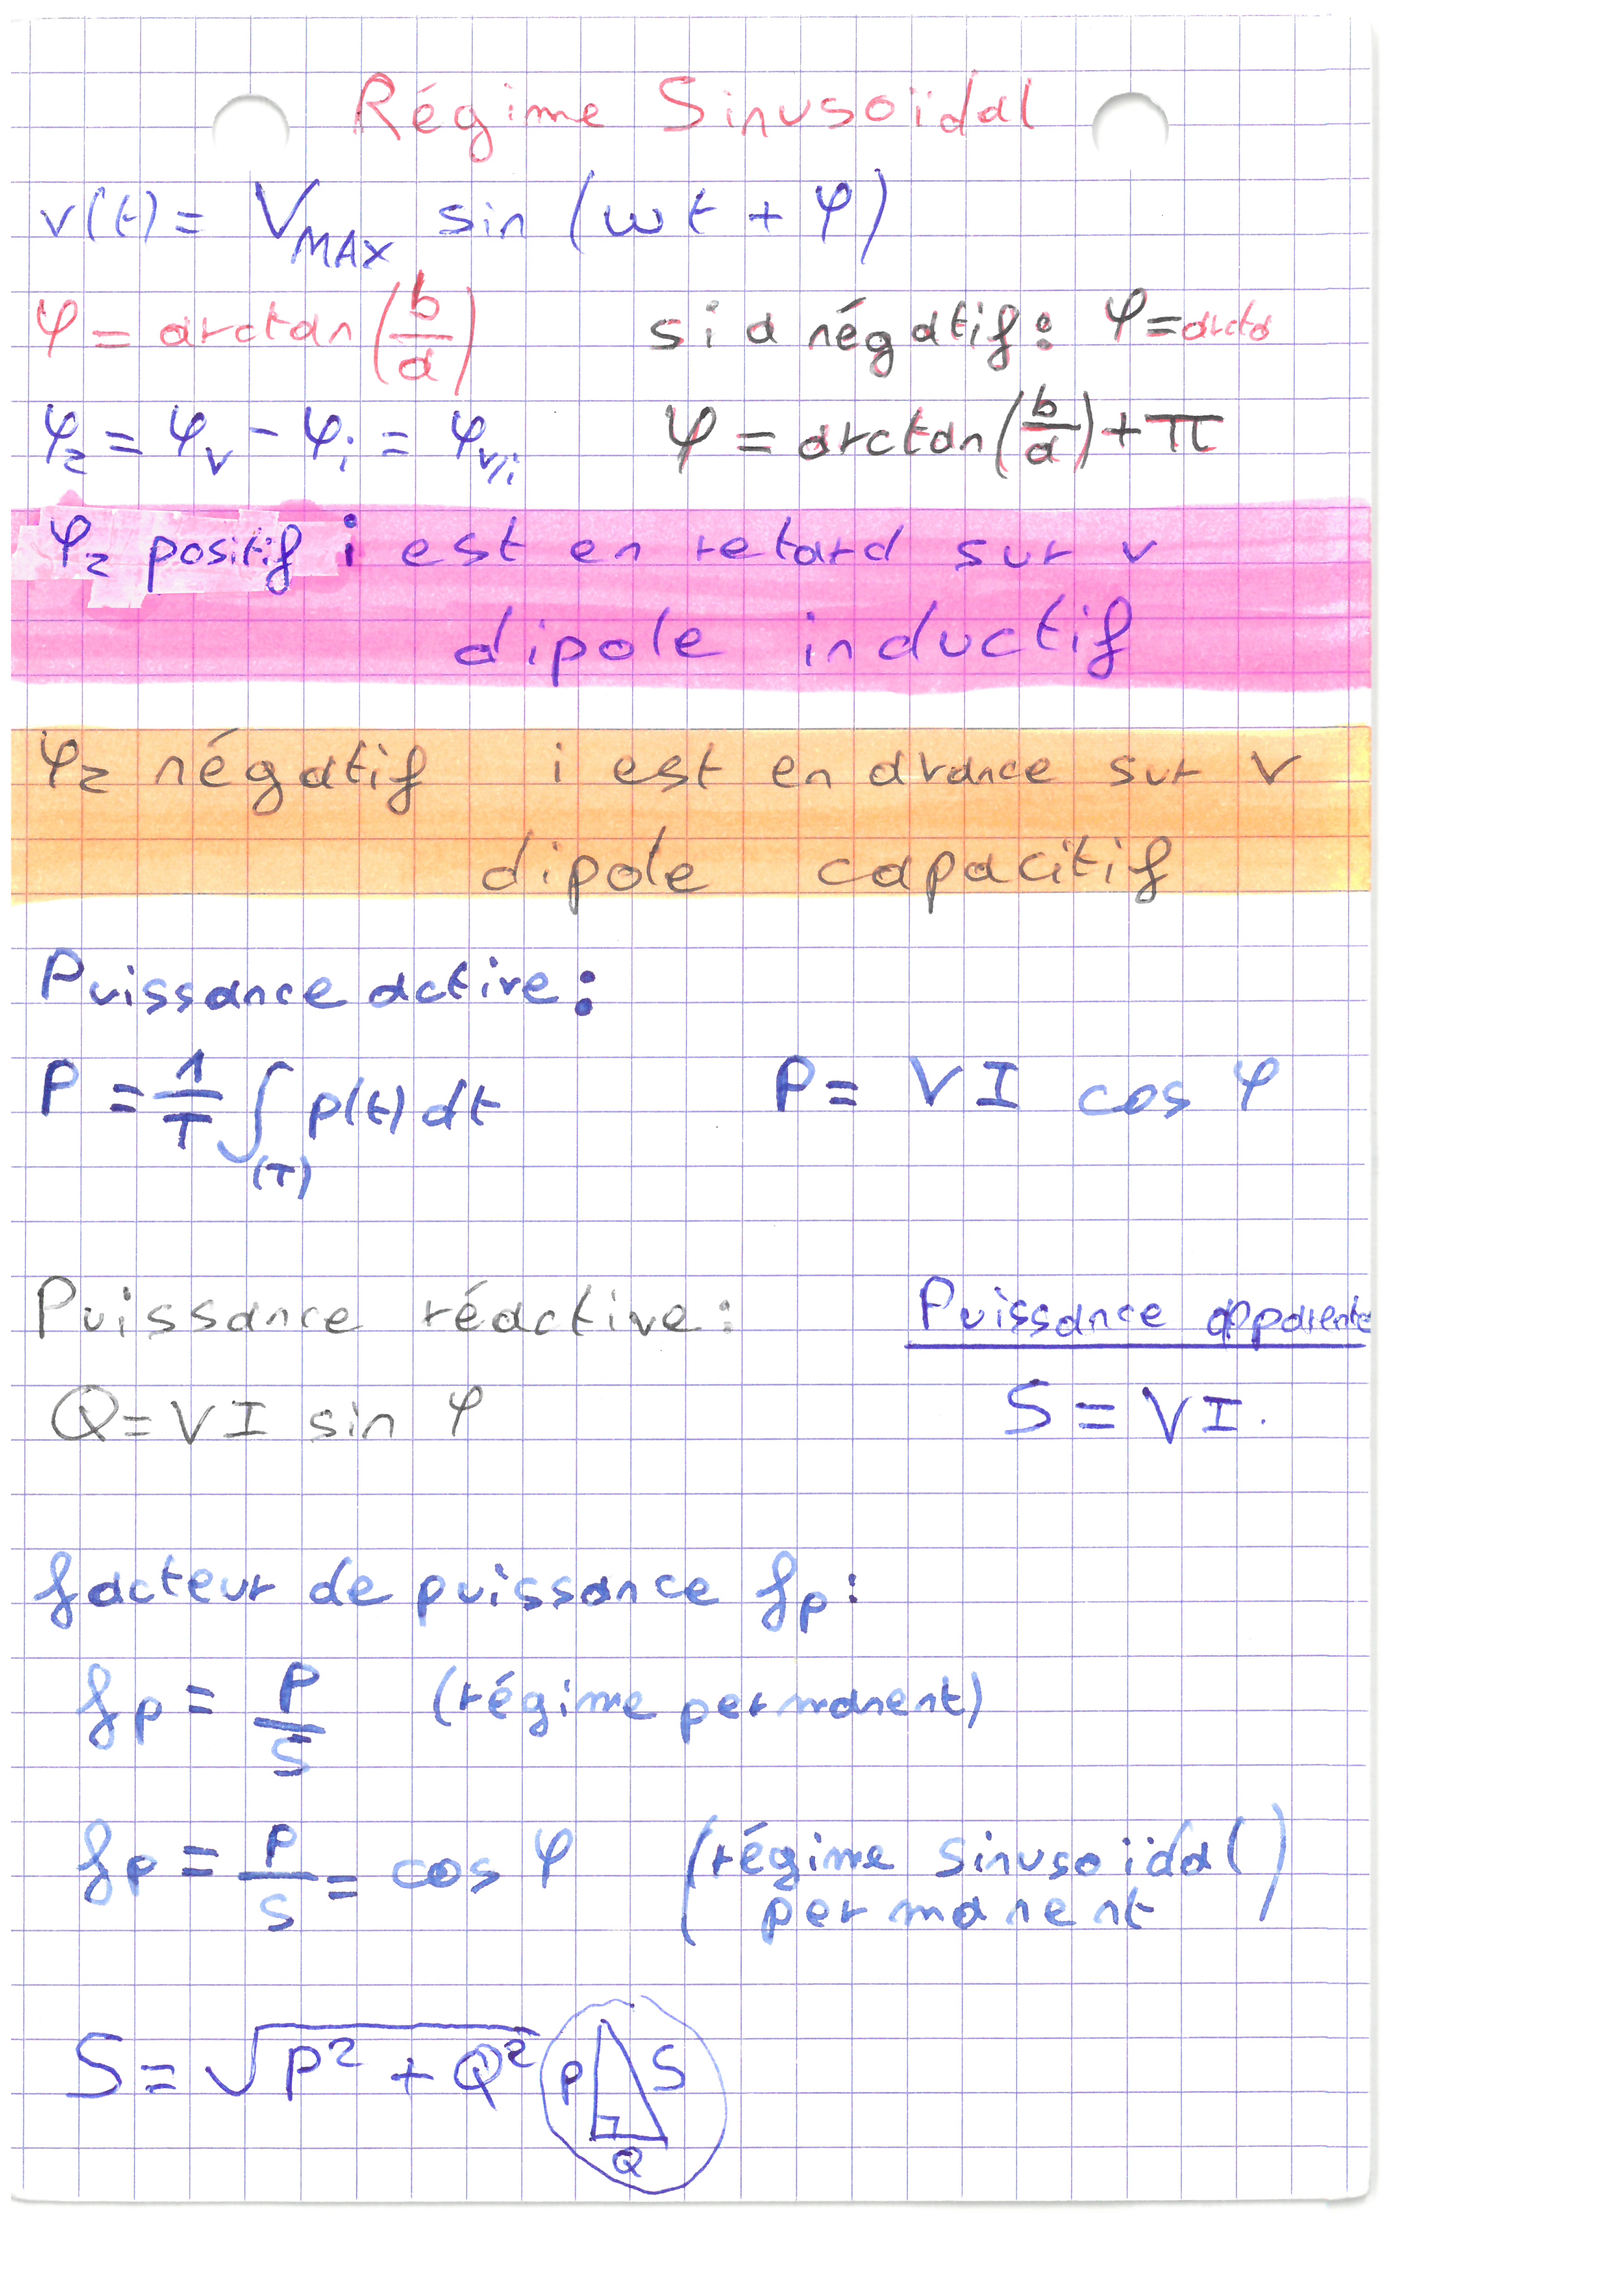 Régime Sinusoïdal
v(t) = V_MAX sin (ωt + φ)
φ = arctan(b/a) si a négatif : φ = arcta
φz = φv - φi = φv/i φ = arctan(b/a) + π
φz positif i est en retard sur v
dipole inductif
φz négatif i est en avance sur v
dipole capacitif
Puissance active :
P = 1/T ∫(T) p(t) dt P = VI cos φ
Puissance réactive : Puissance apparente
Q = VI sin φ S = VI.
facteur de puissance fp :
fp = P/S (régime permanent)
fp = P/S = cos φ (régime sinusoïdal
permanent)
S = √(P² + Q²) P S
Q